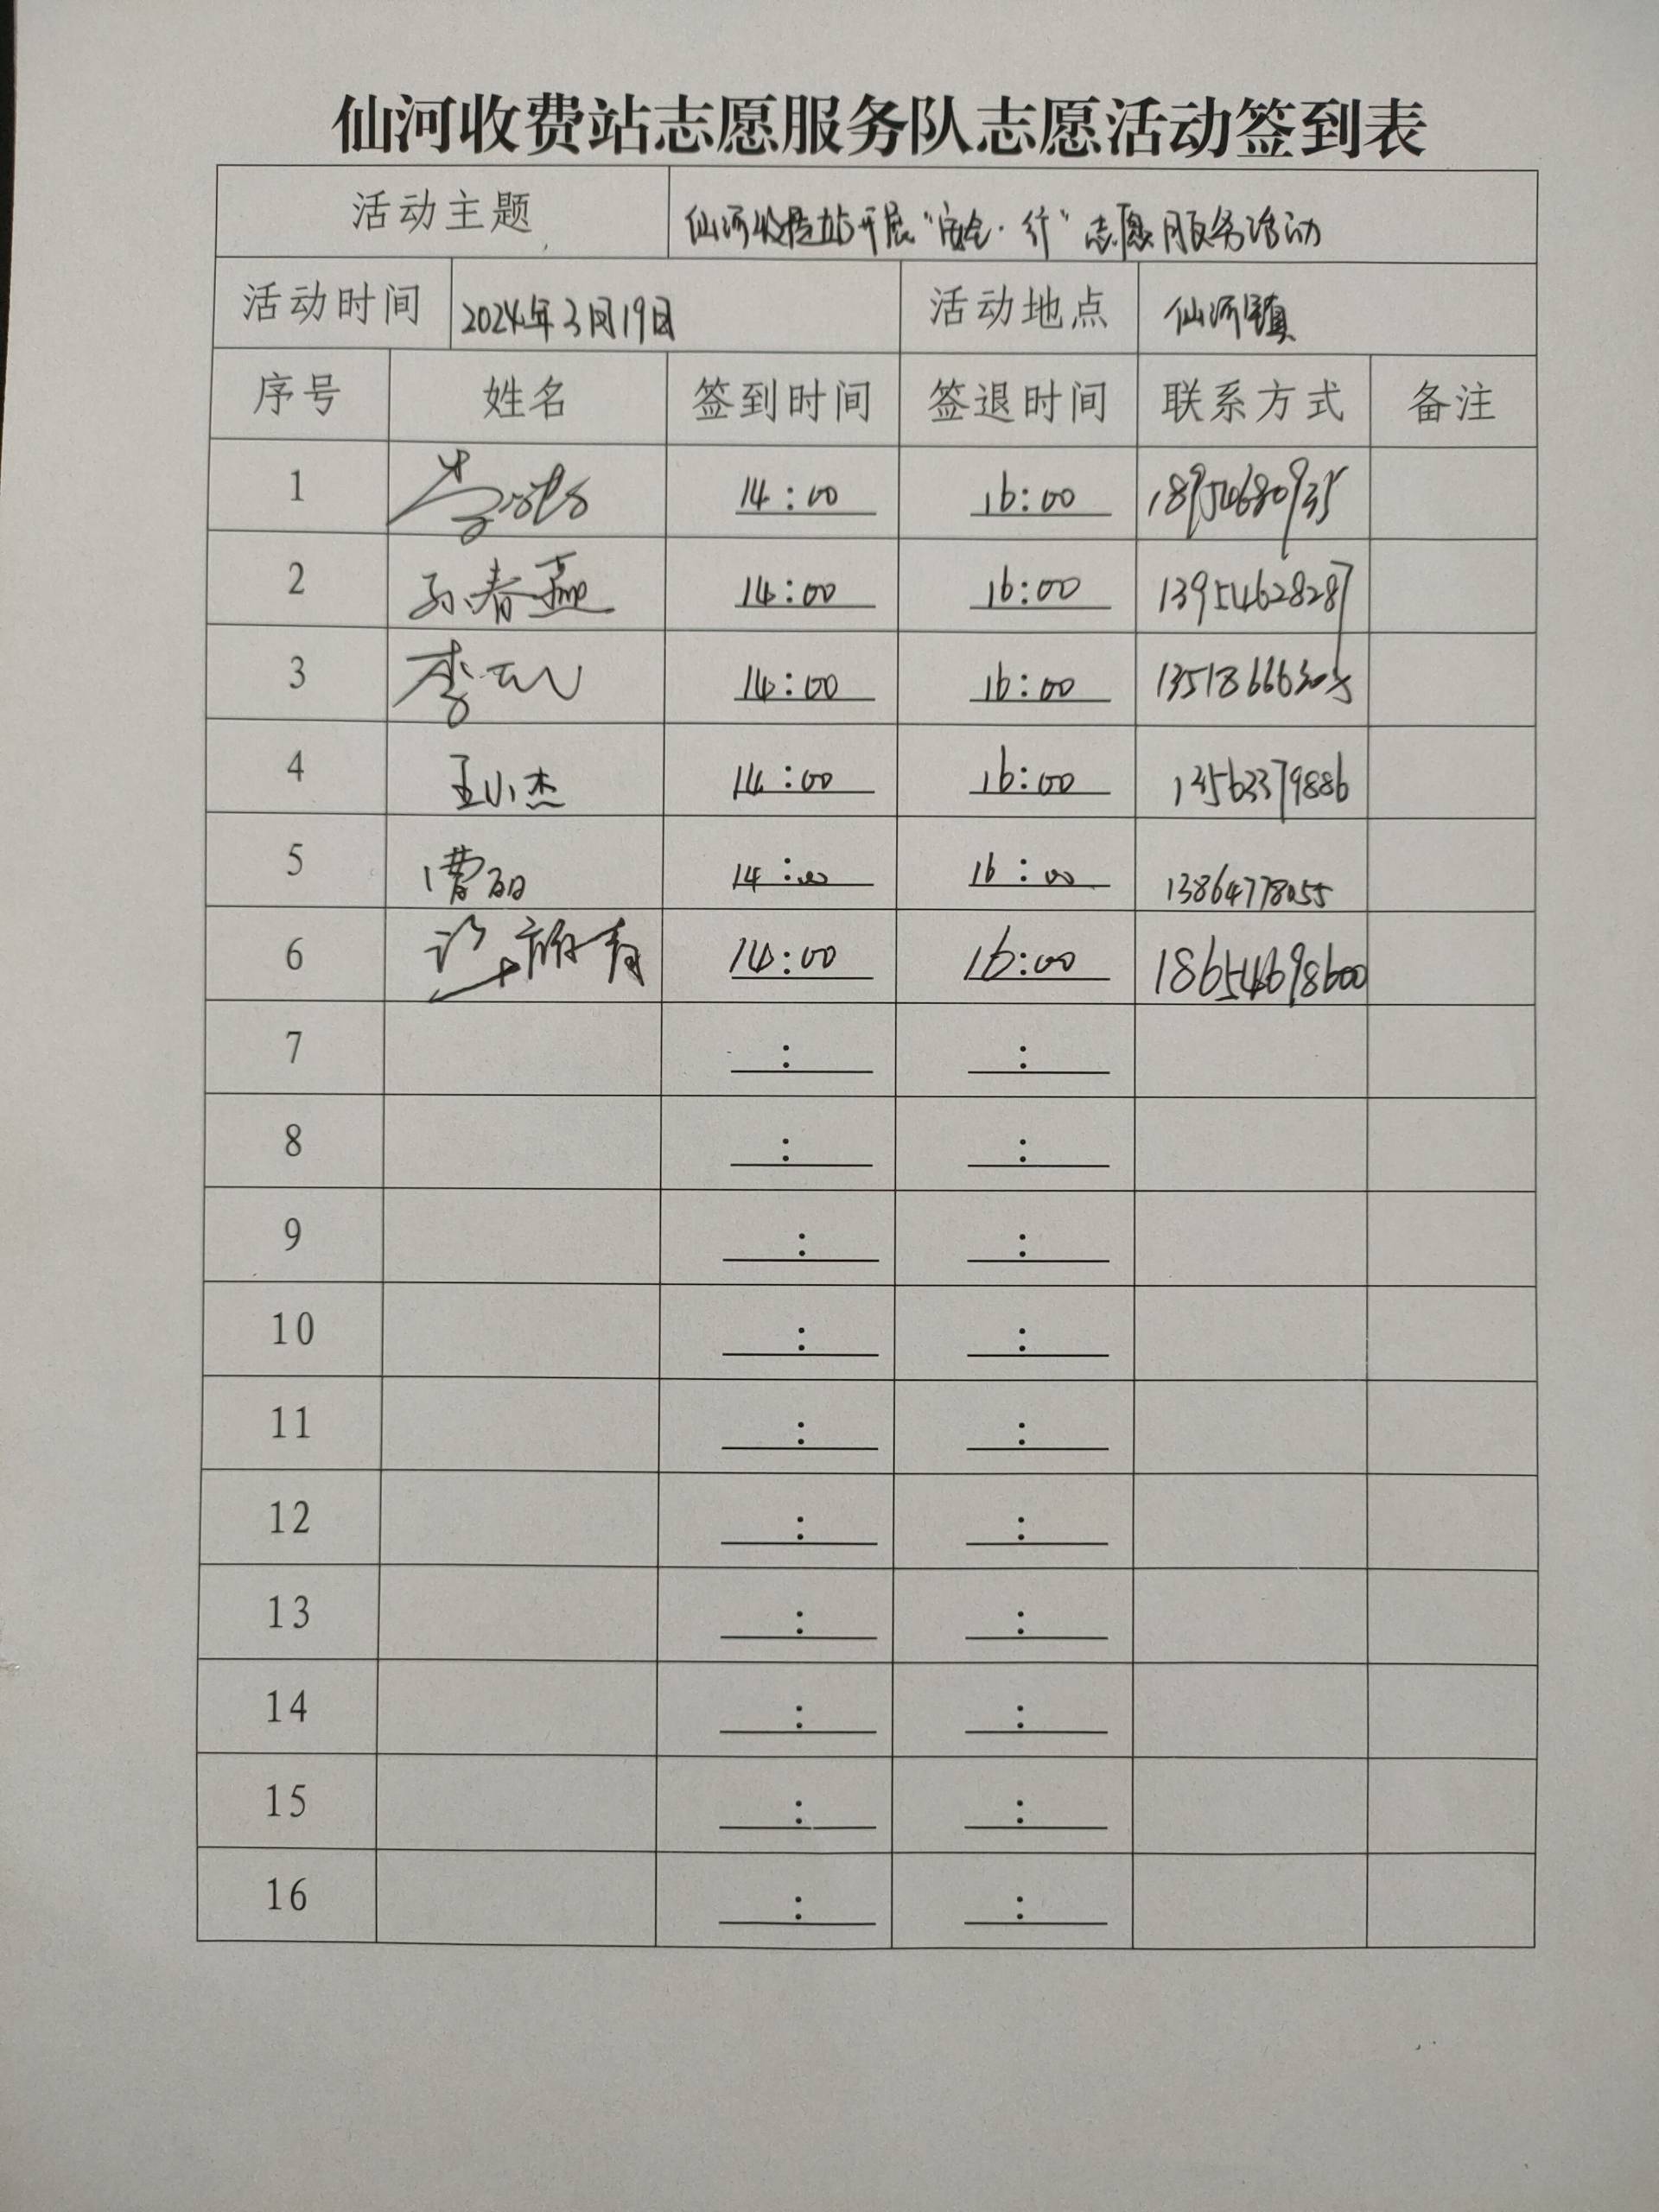 仙河收费站志愿服务队志愿活动签到表
活动主题 仙河收费站开展“安全·行”志愿服务活动
活动时间 2024年3月19日 活动地点 仙河镇
序号 姓名 签到时间 签退时间 联系方式 备注
1 14:00 16:00
2 孙春燕 14:00 16:00 13954628287
3 李 14:00 16:00
4 王小杰 14:00 16:00 13563379886
5 曹丽 14:00 16:00 13864778055
6 14:00 16:00 18654698600
7 : :
8 : :
9 : :
10 : :
11 : :
12 : :
13 : :
14 : :
15 : :
16 : :